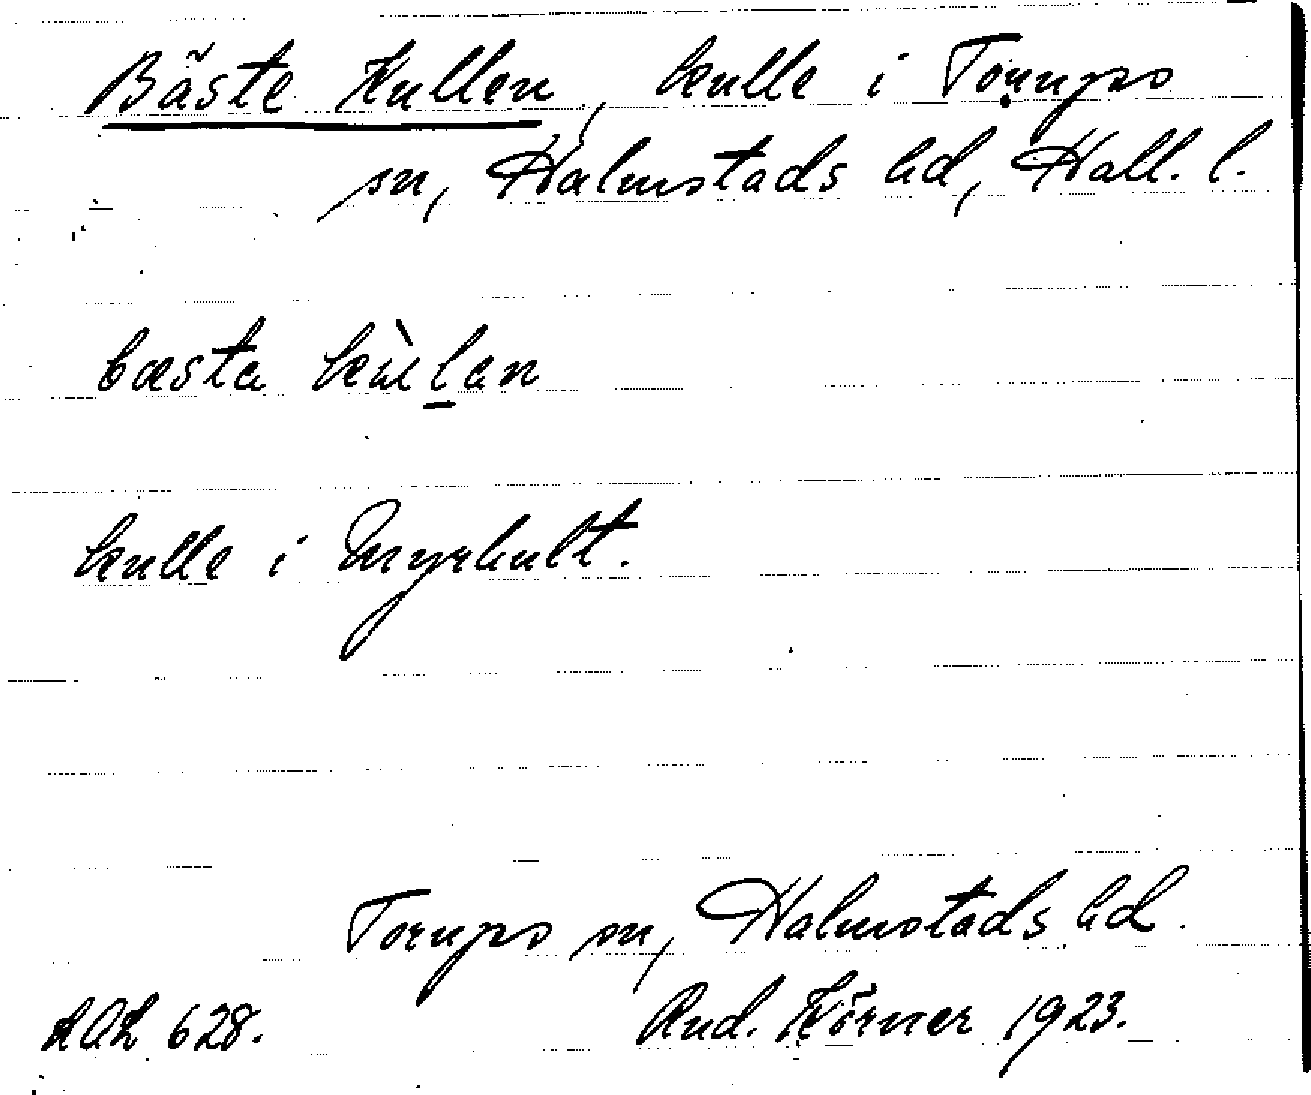 Bäste Kullen, kulle i Torups
sn, Halmstads hd, Hall. l.
bæsta kùlan
kulle i Myrhult.
Torups sn, Halmstads hd.
628. Rud. Körner 1923.